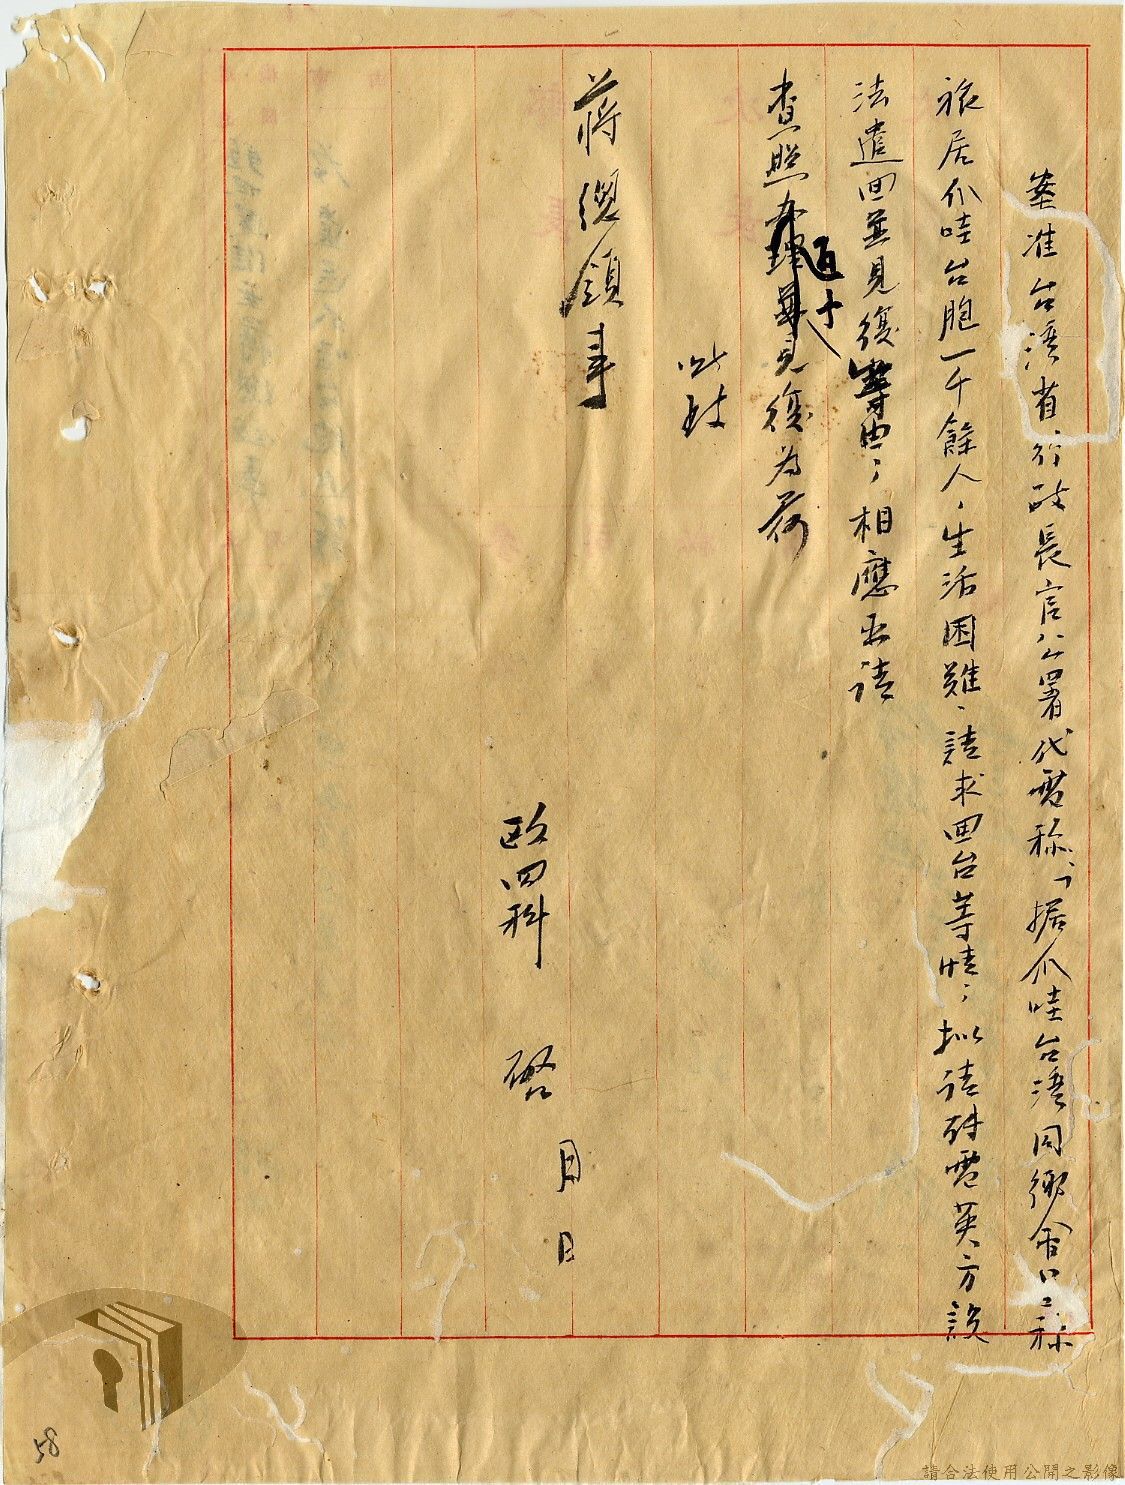 案准台灣省行政長官公署代電称、「据爪哇台灣同鄉會口称
旅居爪哇台胞一千餘人，生活困難、請求回台等情；拟請轉電英方設
法遣回並見復等由；相應函請
查照
見復為荷
此致
蔣總領事
歐四科 啓
月 日
58
請合法使用公開之影像